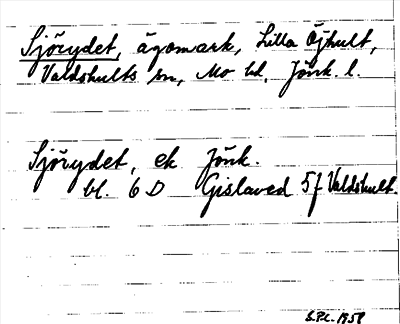 Sjörydet, ägomark, Lilla Öjhult,
Valdshults sn, Mo hd, Jönk. l.
Sjörydet, ek Jönk.
bl. 6D Gislaved 5f Valdshult.
S.P.L. 1958